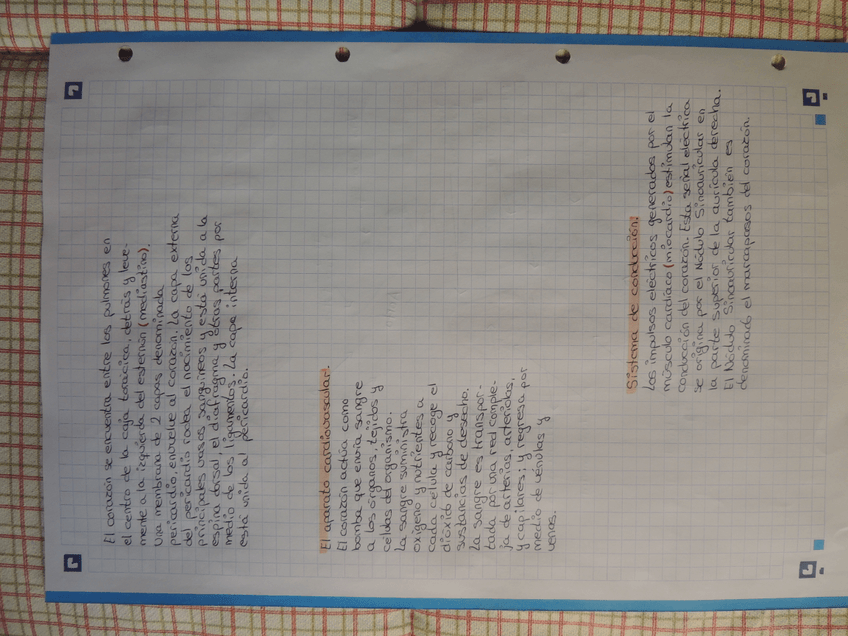 El corazón se encuentra entre los pulmones en
el centro de la caja toracica, detrás y leve-
mente a la izquierda del esternón (mediastino).
Una membrana de 2 capas denominada
pericardio, envuelve al corazón. La capa externa
del pericardio rodea el nacimiento de los
principales vasos sanguíneos y está unida a la
espina dorsal, el diafragma y otras partes por
medio de los ligamentos. La capa interna
está unida al pericardio.
El aparato cardiovascular.
El corazón actúa como
bomba que envía sangre
a los órganos, tejidos y
celdas del organismo.
La sangre suministra
oxígeno y nutrientes a
cada celula y recoge el
dióxido de carbono y
sustancias de desecho.
La sangre es transpor-
tada por una red comple-
ja de arterias, arteriolas,
y capilares; y regresa por
medio de vénulas y
venas.
Sistema de conducción:
Los impulsos eléctricos generados por el
músculo cardíaco (miocardio) estimulan la
conducción del corazón. Esta señal eléctrica
se origina por el Nódulo Sinoauricular en
la parte superior de la aurícula derecha.
El Nódulo Sinoauricular también es
denominado el marcapasos del corazón.